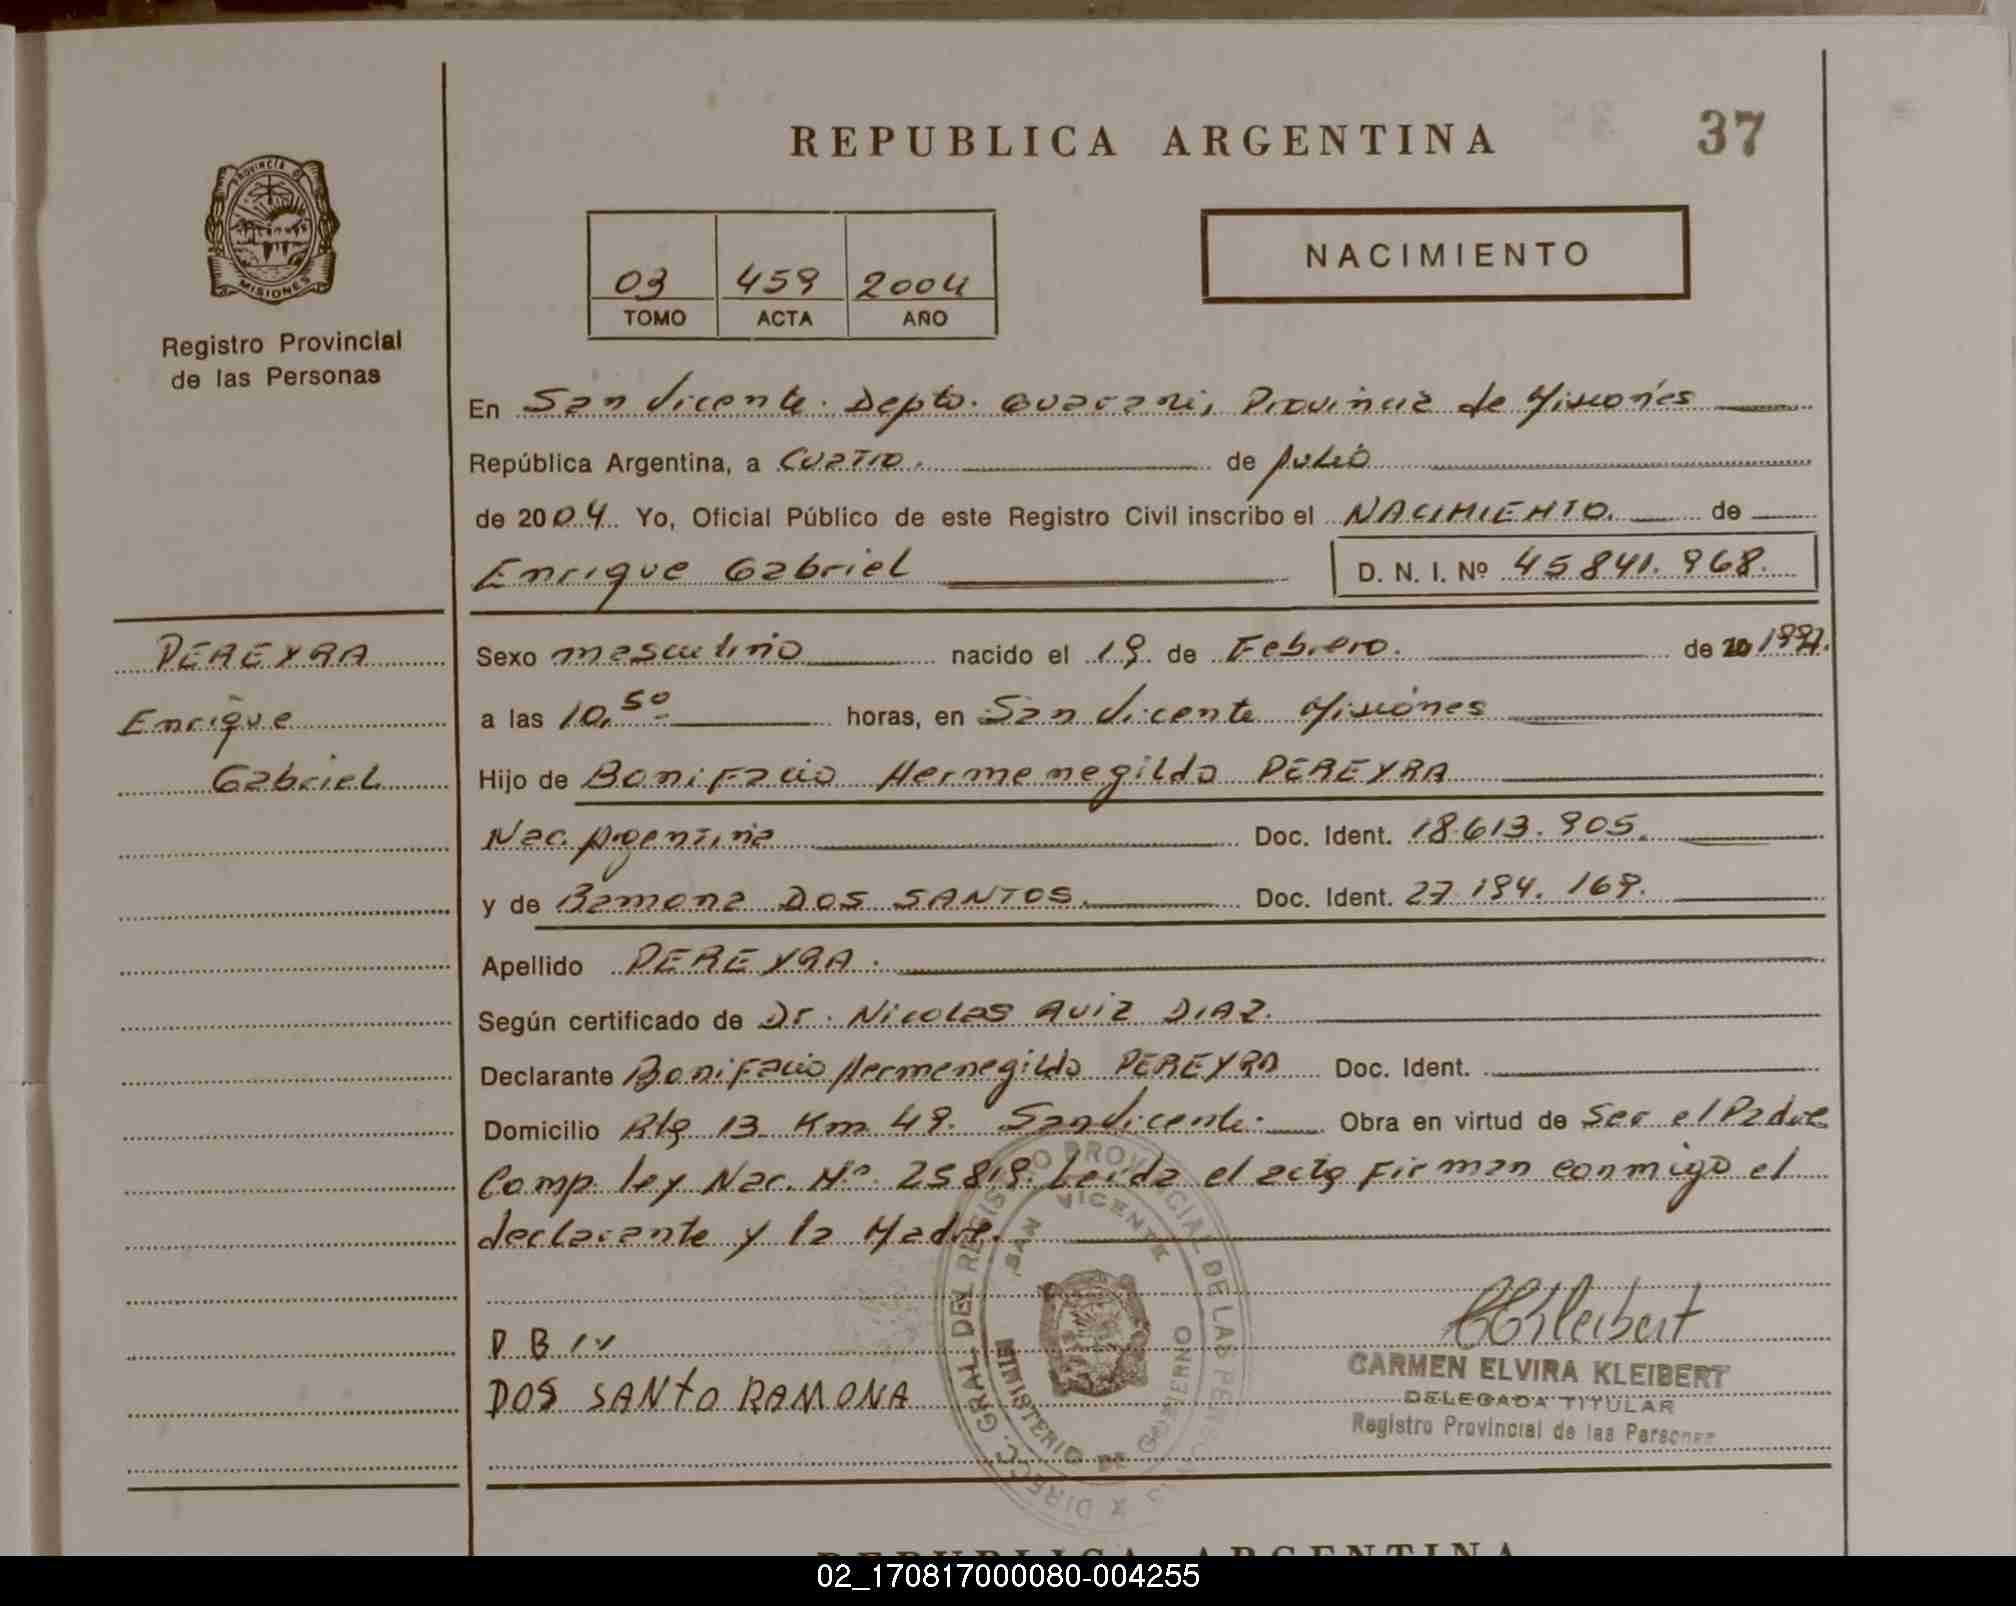 REPUBLICA ARGENTINA
37
PROVINCIA DE
MISIONES
Registro Provincial
de las Personas
03 459 2004
TOMO ACTA AÑO
NACIMIENTO
En San Vicente. Depto. Guarani, Provincia de Misiones
República Argentina, a Cuatro. de Julio
de 2004. Yo, Oficial Público de este Registro Civil inscribo el NACIMIENTO. de
Enrique Gabriel D. N. I. Nº 45841.968.
PEREYRA
Enrique
Gabriel
Sexo masculino nacido el 19 de Febrero. de 20
a las 10,50 horas, en San Vicente Misiones
Hijo de Bonifacio Hermenegildo PEREYRA
Nac. Argentina Doc. Ident. 18.613.905.
y de Ramona DOS SANTOS. Doc. Ident. 27.194.169.
Apellido PEREYRA.
Según certificado de Dr. Nicolas RUIZ DIAZ.
Declarante Bonifacio Hermenegildo PEREYRA Doc. Ident.
Domicilio Rta 13 Km 49. San Vicente. Obra en virtud de Ser el Padre
Comp. ley Nac. Nº. 25819. Leida el acta Firman conmigo el
declarante y la Madre.
DIRECC. GRAL. DEL REGISTRO PROVINCIAL DE LAS PERSONAS
SAN VICENTE
MINISTERIO DE GOBIERNO
DOS SANTO RAMONA
CKleibert
CARMEN ELVIRA KLEIBERT
DELEGADA TITULAR
Registro Provincial de las Personas
REPUBLICA ARGENTINA
02_170817000080-004255